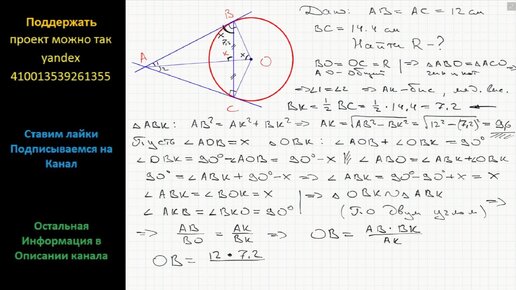 Поддержать
проект можно так
yandex
410013539261355
Ставим лайки
Подписываемся на
Канал
Остальная
Информация в
Описании канала
A
B
C
K
O
x
x
7,2
1
2
r
r
Дано: AB = AC = 12 см
BC = 14.4 см
Найти R - ?
BO = OC = R | => △ABO = △ACO
AO - общий
=> ∠1 = ∠2 => AK - бис, мед, выс.
BK = 1/2 BC = 1/2 · 14,4 = 7.2
△ABK: AB² = AK² + BK² => AK = √AB² - BK² = √12² - (7,2)² = 9,6
Пусть ∠AOB = X △OBK: ∠AOB + ∠OBK = 90°
∠OBK = 90° - ∠AOB = 90° - X // ∠ABO = ∠ABK + ∠OBK
90° = ∠ABK + 90° - X => ∠ABK = 90° - 90° + X = X
∠ABK = ∠BOK = X | => △OBK ∾ △ABK
∠AKB = ∠BKO = 90° (По двум углам) =>
=> AB/BO = AK/BK => OB = AB · BK / AK
OB = 12 · 7.2